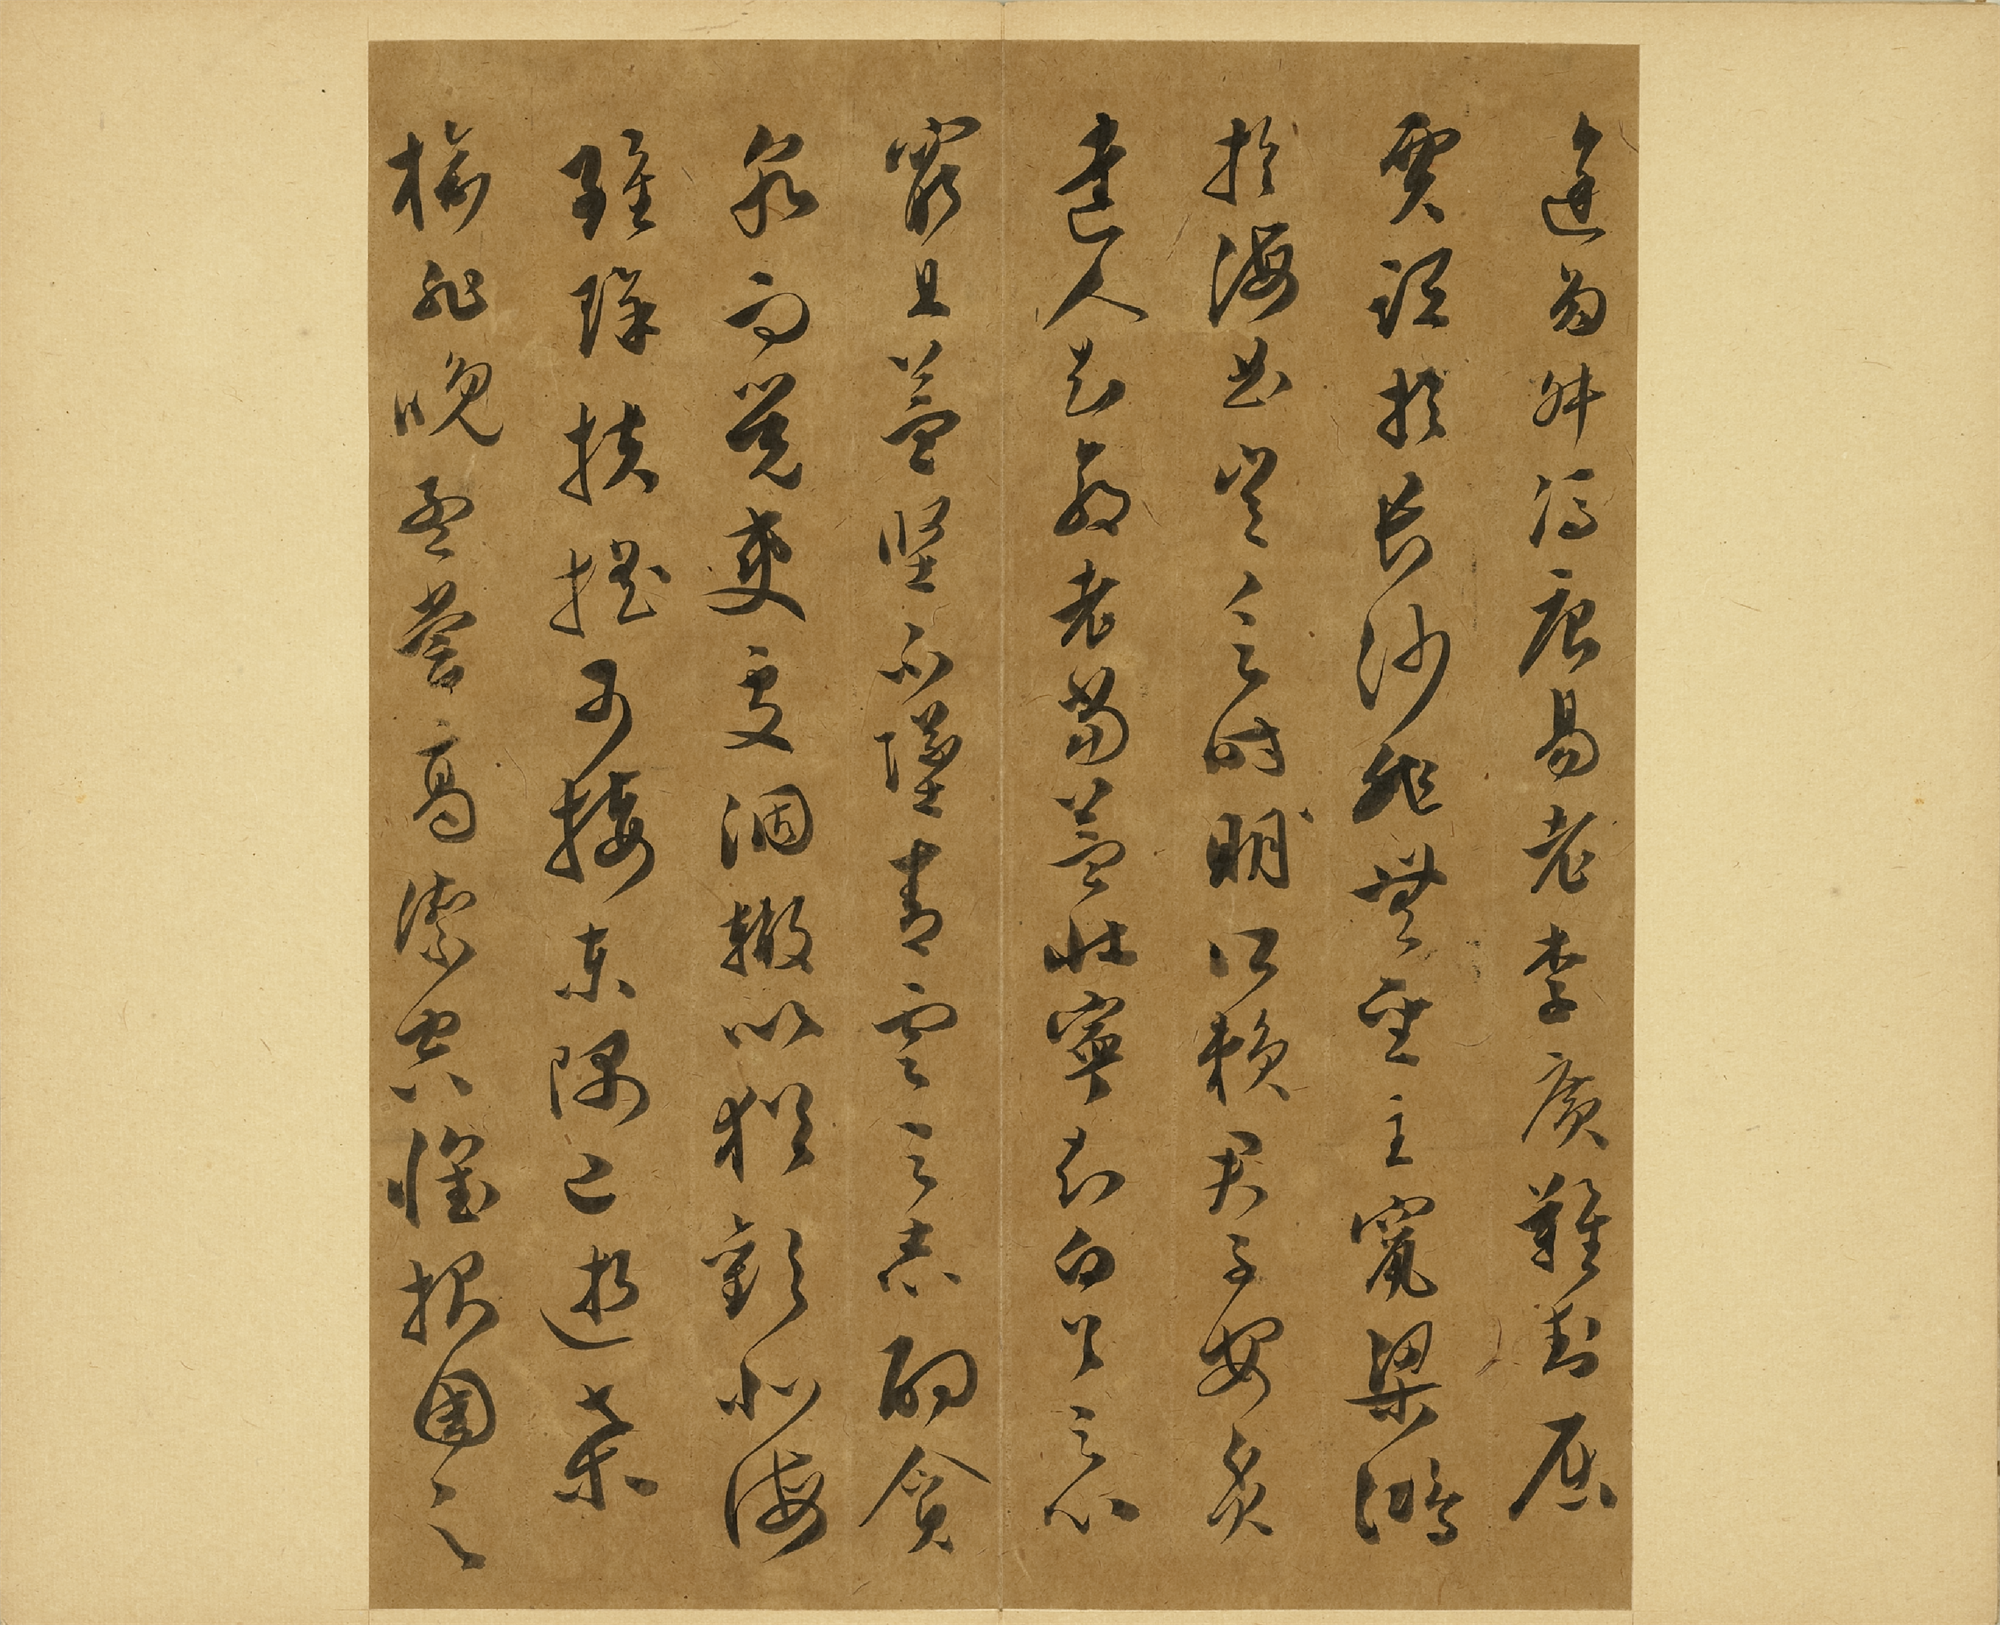 途多舛馮唐易老李廣難封屈
賈誼於長沙非無聖主竄梁鴻
於海曲豈乏時明所賴君子安貧
達人知命老當益壯寧知白首之心
窮且益堅不墜青雲之志酌貪
泉而覺爽處涸轍以猶歡北海
雖賒扶搖可接東隅已逝桑
榆非晚孟嘗高潔空懷報國之